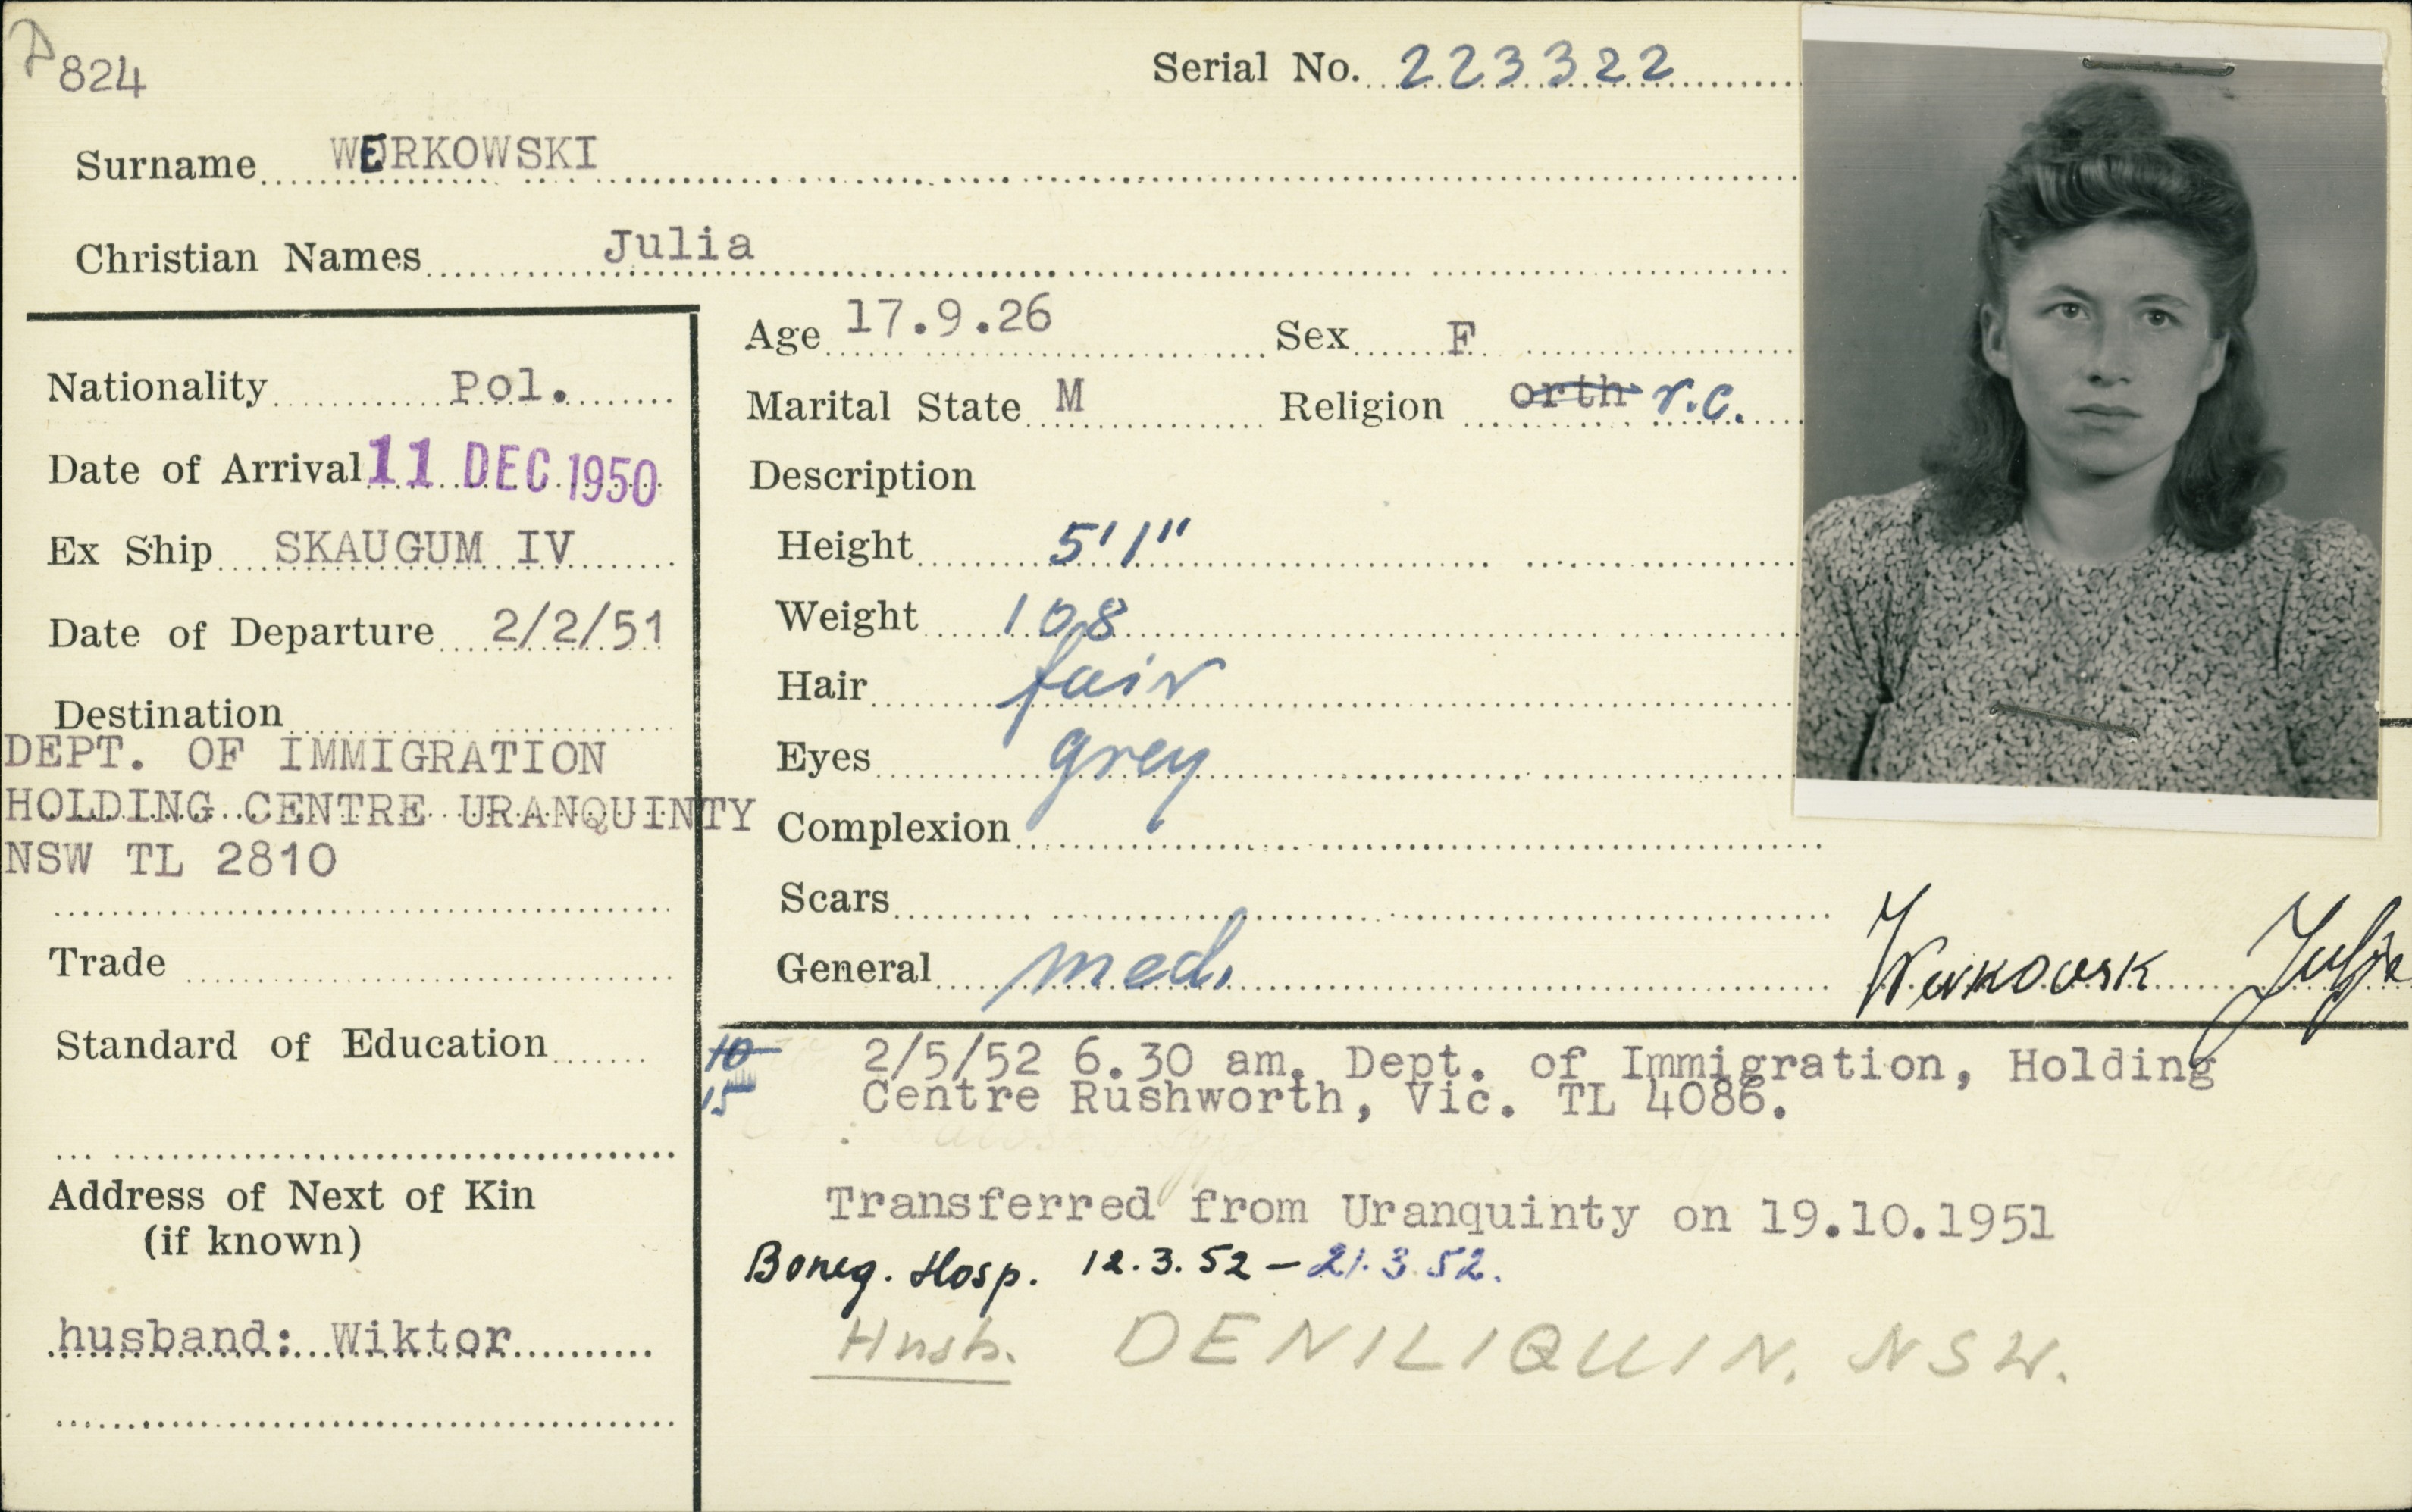 P824
Serial No. 223322
Surname WERKOWSKI
Christian Names Julia
Nationality Pol.
Date of Arrival 11 DEC 1950
Ex Ship SKAUGUM IV
Date of Departure 2/2/51
Destination
DEPT. OF IMMIGRATION
HOLDING CENTRE URANQUINTY
NSW TL 2810
Trade
Standard of Education
Address of Next of Kin
(if known)
husband: Wiktor
Age 17.9.26 Sex F
Marital State M Religion orth r.c.
Description
Height 5'1"
Weight 108
Hair fair
Eyes grey
Complexion
Scars
General med.
Werkowsk Julja
10
15
2/5/52 6.30 am. Dept. of Immigration, Holding
Centre Rushworth, Vic. TL 4086.
Transferred from Uranquinty on 19.10.1951
Boneg. Hosp. 12.3.52 – 21.3.52.
Husb. DENILIQUIN. NSW.